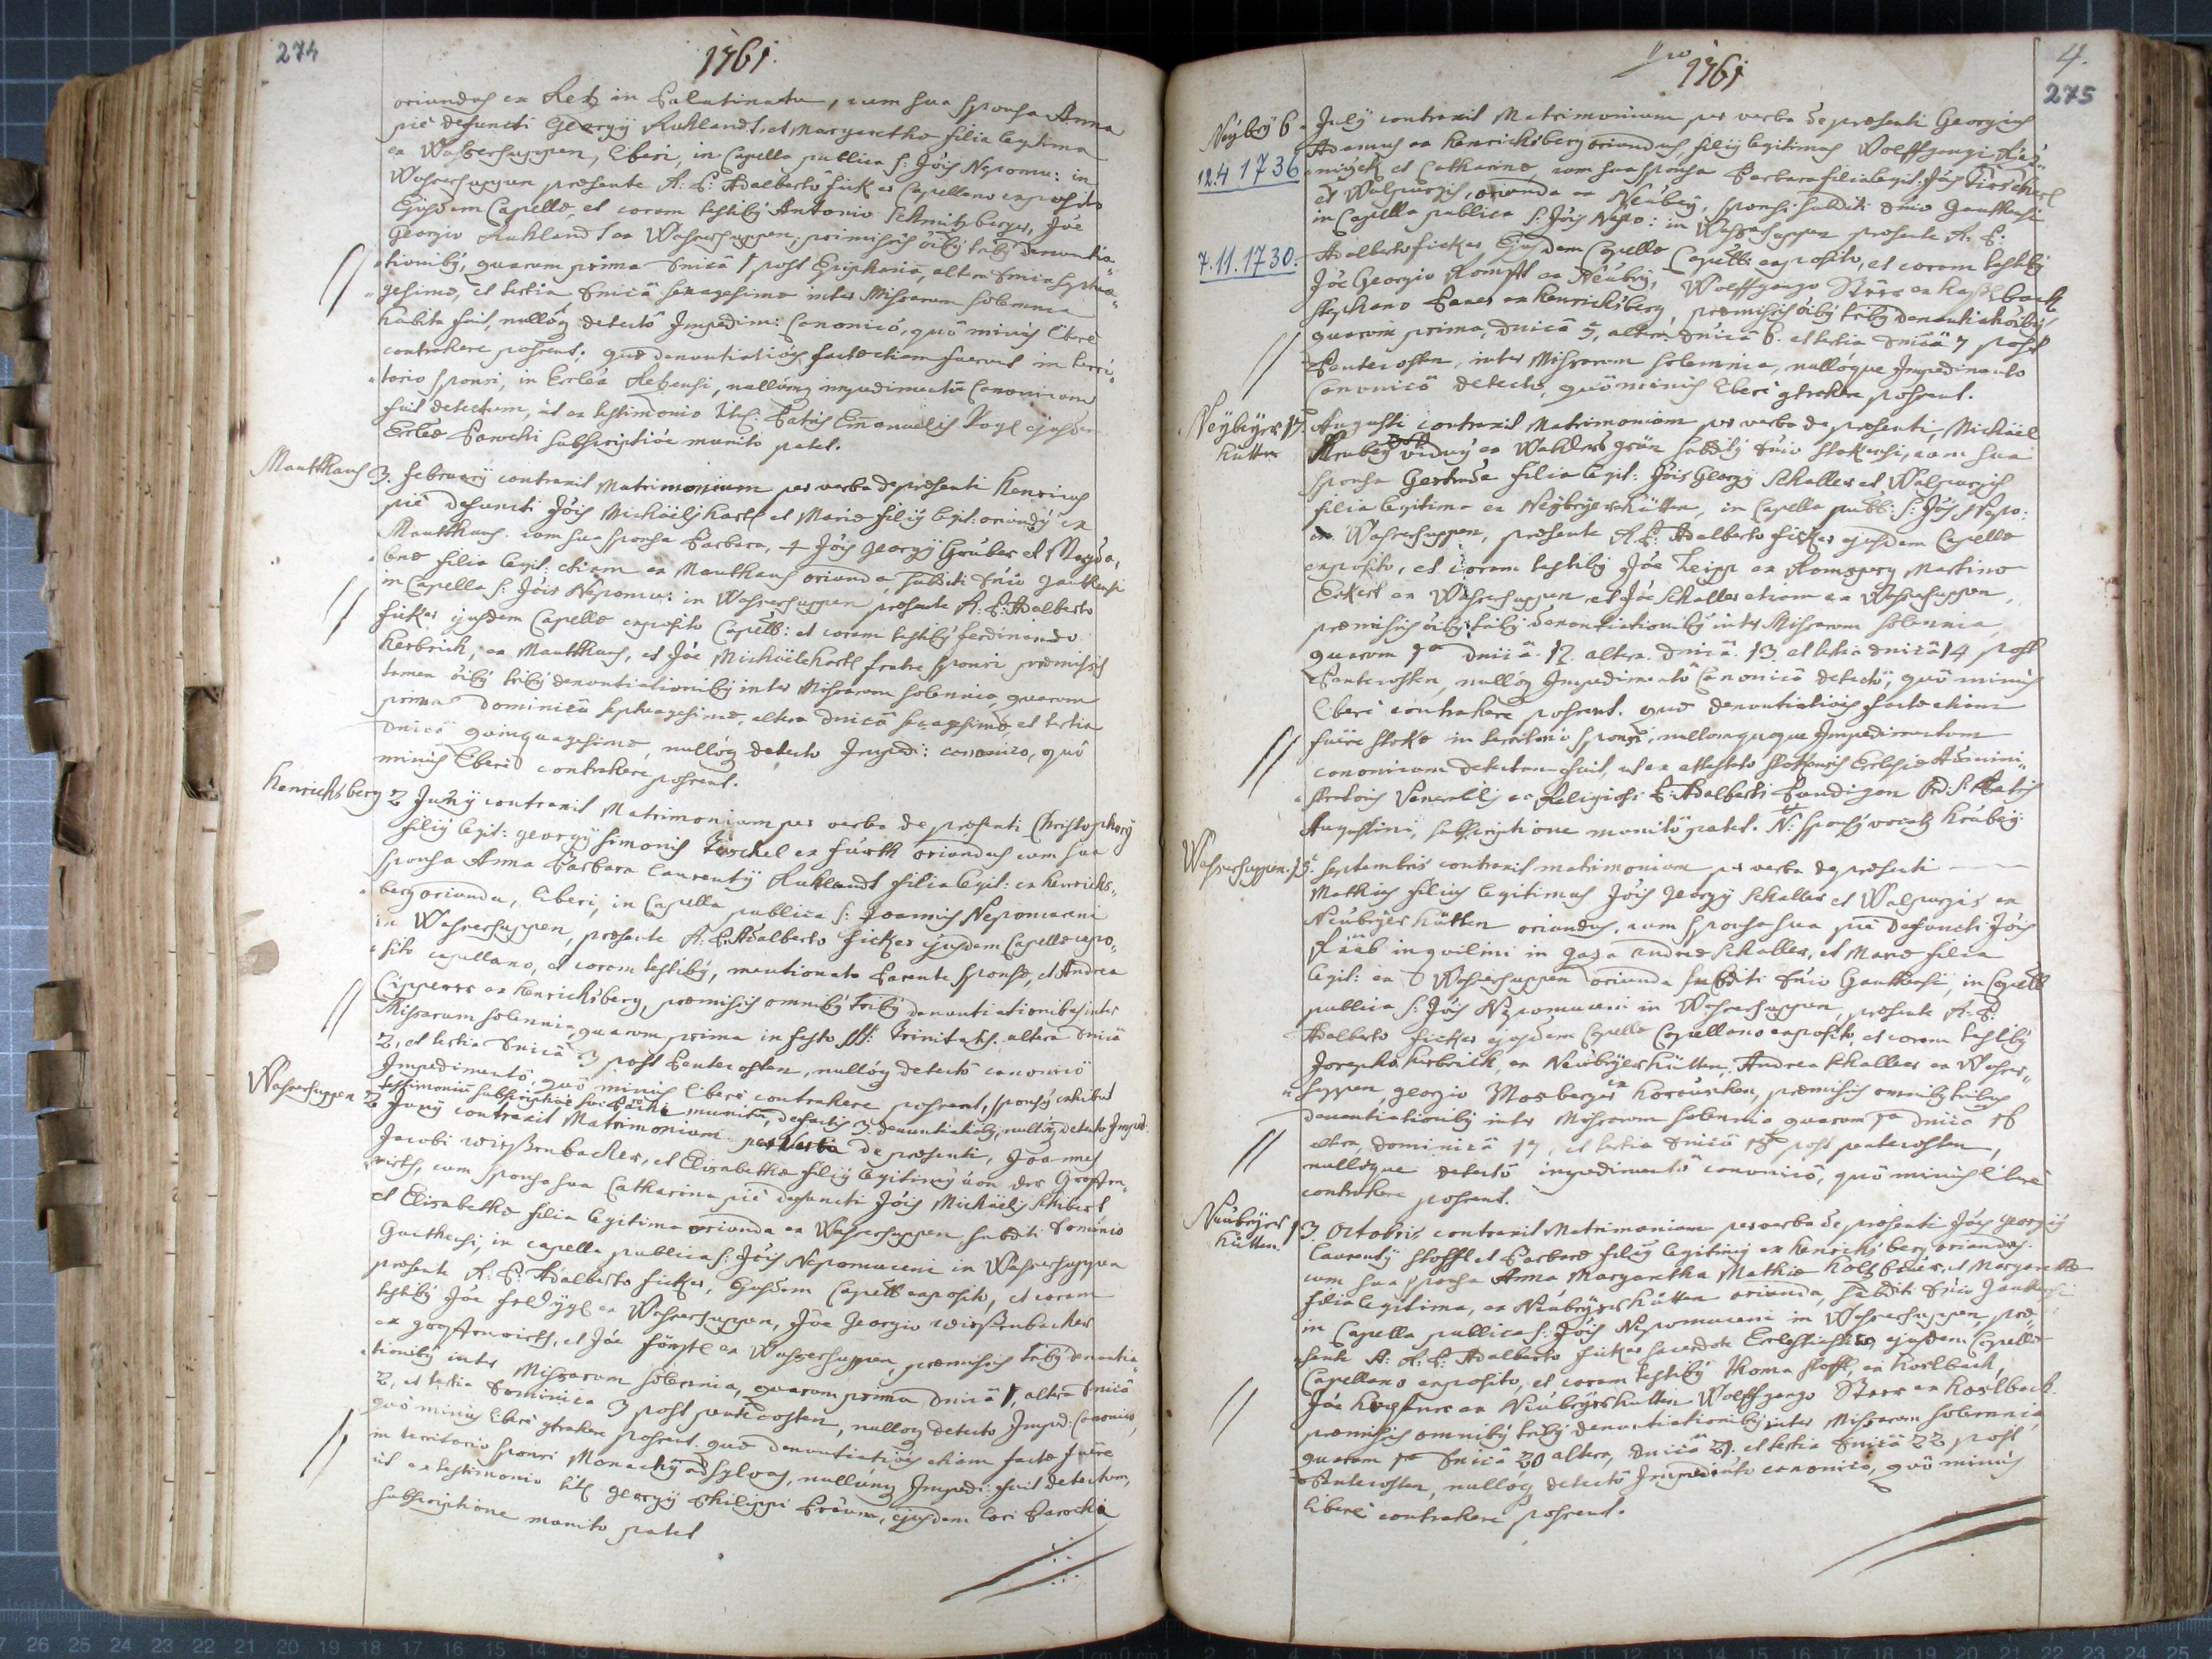 274
1761.
oriundus ex Retz in Palatinatu, cum sua sponsa Anna
piè defuncti Georgÿ Ruhlandt, et Margaretha filia legitima
ex Wassersuppen, liberi, in Capella publica S: Jōis Nepomu: in
Wassersuppen praesente A: P: Adalberto ficker Capellano exposito
Ejusdem Capellae, et coram testibÿ Antonio Schmitzberger, Jōe
Georgio Ruhlandt ex Wassersuppen; praemissis oibÿ tribÿ denuntia-
tionibÿ, quarum prima dnicâ 1 post Epiphania, altera dnica septua-
gesimae, et tertia dnicâ sexagesimae inter Missarum solemnia
habita fuit, nullóq detectô Impedim: Canonicô, quô minùs liberè
contrahere possent. quae denuntiatiōes factae etiam fuerunt in terri-
torio sponsi, in Ecclēa Retzensi, nullúmq impedimentū Canonicum
fuit detectum, ut ex testimonio titl: Patris Emanuelis Vogl ejusdem
Ecclae Parochi subscriptiōe munito patet.
Mautthaus 3. February contraxit Matrimonium per verba de praesenti Henricus
piè defuncti Jōis Michäelis hartl et Mariae filiÿ legit: oriundÿ ex
Mautthaus. cum sua sponsa Barbara, + Jōis Georgÿ Gruber et Magda-
lenae filia legit: etiam ex Mautthaus orianda, subditi dnio Gautkensi
in Capella S: Jōis Nepomu: in Wassersuppen praesente A. P: Adalberto
ficker ejusdem Capellae exposito Capell: et coram testibÿ ferdinando
herbrich, ex Mautthaus, et Jōe Michäele hartl fratre sponsi praemissis
tamen oibÿ tribÿ denuntiationibÿ inter Missarum solennia, quarum
prima Dominicâ septuagesimae, altera dnicâ sexagesimae, et tertia
dnicâ quinquagesimae, nullóq detecto Impedi: canonico, quô
minùs liberè contrahere possent.
Henrichsberg 2 Junÿ contraxit Matrimonium per verba de praesenti Christophorÿ
filiÿ legit: georgÿ Simonis ex fürth oriundus cum sua
sponsa Anna Barbara Laurentÿ Ruhlandt filia legit: ex henrichs-
berg orianda, liberi, in Capella publica S: Joannis Nepomuceni
in Wassersuppen, praesente A: P: Adalberto ficker ejusdem Capellae expo-
sito capellano, et coram testibÿ, mentionato Parente sponsae, et Andrea
ex henrichsberg, praemissis omnibÿ tribÿ denuntiationibus inter
Missarum solennia, quarum prima in festo SSS: Trinitatis. altera dnicâ
2, et tertia dnicâ 3 post Pentecosten, nullóq detectô canonicô
Impedimentô, quô minùs liberè contrahere possent, sponsÿ exhibuit
testimoniū subscriptiōe sui Parochi munitū, defactis 3. denuntiatiōibÿ, nullóq detecto Imped.
Wassersuppen 2 Junÿ contraxit Matrimonium per Verba de praesenti, Joannes
Jacobi wießenbacher, et Elisabethae filiÿ legitimÿ von der
cum sponsa sua Catharina piè defuncti Jōis Michäelis Schibert
et Elisabetha filia legitima orianda ex Wassersuppen subditi Dominio
Gautkensi, in capella publica S: Jōis Nepomuceni in Wassersuppen
praesente A: P: Adalberto ficker, Ejusdem Capellae exposito, et coram
testibÿ Jōe ex Wassersuppen, Jōe Georgio wießenbacher
ex et Jōe ex Wassersuppen, praemissis tribÿ denuntia-
tionibÿ inter Missarum solennia, quarum prima dnicâ 1, altera dnicâ
2, et tertia Dominica 3 post pentecosten, nulloq detecto Imped: Canonico,
quô minùs liberè ɔtrahere possent. quae denuntiatiōes etiam factae fuêre
in territorio sponsi Monachÿ ad sylvas, nullúmq Impedi: fuit detectum,
ut ex testimonio titl georgÿ Philippi ejusdem loci Parochi
subscriptione munito patet
1761
4.
275
Neÿbeÿ 6. July contraxit Matrimonium per verba de praesenti Georgius
12.4 1736
Adamus ex henrichsberg oriundus, filiÿ legitimus Wolffgangi
et Catharinae, cum sua sponsa Barbara filia legit: Jōis
et Walpurgis, orianda ex Neübeÿ, sponsi subditi dnio Gautkensi
in Capella publica S: Jōis Nepo: in Wassersuppen praesente A. P:
7.11.1730.
Adalberto ficker Ejusdem Capellae Capell: exposito, et coram testibÿ
Jōe Georgio ex Neübeÿ, Wolffgango ex haßlbach
stephano ex henrichsberg, praemissis oibÿ tribÿ denuntiatōibÿ,
quarum prima, dnicâ 5, altera dnicâ 6. et tertia dnicâ 7 post
Pentecosten, inter Missarum solemnia, nullóque Impedimento
Canonicô detecto, quô minùs liberè ɔtrahere possent.
Neÿbeÿer 17. Augusti contraxit Matrimonium per verba de praesenti, Michäel
hütten
viduÿ ex subditÿ dnio stokensi, cum sua
sponsa Gertrude filia legit: Jōis Georgÿ Schaller et Walpurgis
filia legitima ex Neÿbeÿerhütten, in Capella publ: S: Jōis Nepo:
in Wassersuppen, praesente A. P: Adalberto ficker ejusdem Capellae
exposito, et coram testibÿ Jōe Zeipp ex Martino
Eckert ex Wassersuppen, et Jōe Schaller etiam ex Wassersuppen,
praemissis oibÿ tribÿ denuntiationibÿ inter Missarum solennia,
quarum 1ma dnicâ. 12. altera. dnicâ. 13. et tertia dnicâ 14 post
Pentecosten, nullóq Impedimentô Canonicô detectô, quô minùs
liberè contrahere possent. quae denuntiatiōes factae etiam
fuêre stokae in territorio sponsi, nullumque Impedimentum
canonicum detectum fuit, ut ex attestato Ecclesiae Admini-
stratoris Venerablis ac Religiosi P: Adalberti Ord. S. Patris
Augustini, subscriptione munitô patet. N: sponsÿ vocatÿ
Wassersuppen. 15. Septembris contraxit matrimonium per verba de praesenti
Mathias filius legitimus Jōis georgÿ Schaller et Walpurgis ex
Neübeÿer hütten oriundus. cum sponsa sua piè Defuncti Jōis
Rääb inquilini in Casa Andreae Schaller, et Mariae filia
legit: ex Wassersuppen orianda subditi dnio Gautkensi, in Capella
publica S: Jōis Nepomuceni in Wassersuppen, praesente A. P:
Adalberto ficker ejusdem Capellae Capellano exposito, et coram testibÿ
Josepho herbrich, ex Neübeÿerhütten, Andrea Schaller ex Wasser-
suppen, georgio Mosberger ex praemissis omnibÿ tribÿ
denuntiationibÿ inter Missarum solennia quarum 1ma dnica 16
altera, dominicâ 17, et tertia dnicâ 18 post pentecosten,
nullóque detectô impedimentô canonicô, quô minùs liberè
contrahere possent.
Neübeÿer 13. Octobris contraxit Matrimonium per verba de praesenti Jōis georgÿ
hütten.
Laurentÿ stoffl et Barbarae filiÿ legitimÿ ex henrichsberg oriundus.
cum sua sponsa Anna Margaretha Mathiae et Margarethae
filia legitima, ex Neübeÿerhütten orianda, subditi dnio Gautkensi
in Capella publica S: Jōis Nepomuceni in Wassersuppen, prae-
sente A: A: P: Adalberto ficker sacerdote ejusdem Capellae
Capellano exposito, et coram testibÿ Thoma stoffl, ex haslbach,
Jōe ex Neübeÿerhütten Wolffgango ex haslbach.
praemissis omnibÿ tribÿ denuntiationibÿ inter Missarum solennia,
quarum 1ma dnicâ 20 altera, dnicâ 21. et tertia dnicâ 22 post
Pentecosten, nullóq detectô Impedimento canonico, quô minùs
liberè contrahere possent.